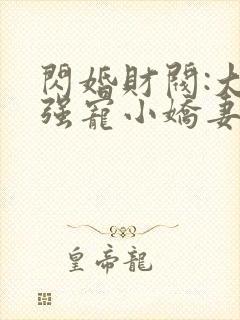 閃婚財閥:大
强寵小嬌妻
皇帝龍